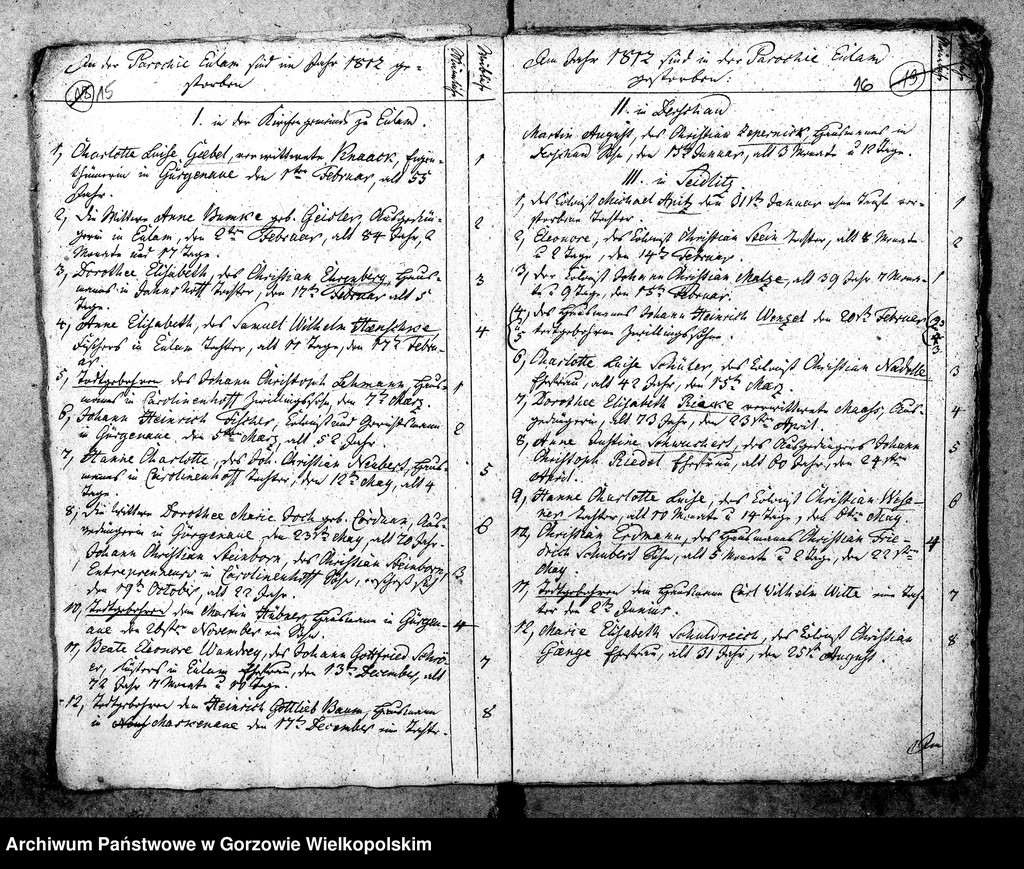 In der Parochie Eulam sind im Jahr 1812 ge-
storben
15
Männlich
Weiblich
I. in der Kirchengemeinde zu Eulam.
1, Charlotte Luise Goebel, verwittwete Knaack, Eigen-
thümerin in Gürgenaue den 1ten Februar, alt 55 1
Jahr.
2, Die Wittwe Anne Bumke geb. Geisler, Ausgedin-
gerin in Eulam, den 2ten Februar, alt 84 Jahr, 2 2
Monate und 17 Tage.
3, Dorothee Elisabeth, des Christian Ehrenberg, Haus- 3
manns in Johannshoff Tochter, den 17ten Februar alt 5
Tage.
4, Anne Elisabeth, des Samuel Wilhelm Haenschke 4
Fischers in Eulam Tochter, alt 11 Tage, den 17t Febru-
ar.
5, Todtgebohren des Johann Christoph Lehmann, Haus- 1
manns in Carolinenhoff Zwillingssohn, den 7ten März.
6, Johann Heinrich Fischer, Colonist und Gerichtsmann 2
in Gürgenaue den 5ten März, alt 52 Jahr.
7, Hanne Charlotte, des Joh. Christian Neubert, Haus- 5
manns in Carolinenhoff Tochter, den 12ten May, alt 4
Tage.
8, Die Wittwe Dorothee Marie Joch geb. Cordann, Aus- 6
gedingerin in Gürgenaue den 23ten May, alt 70 Jahr.
Johann Christian Steinborn, des Christian Steinborn, 3
Entreprenneurs in Carolinenhoff Sohn, erschoß sich
den 19ten October, alt 22 Jahr.
10, Todtgebohren dem Martin Hübner, Hausmann in Gürgen- 4
aue den 26sten November ein Sohn.
11, Beate Eleonore Wandrey, des Johann Gottfried Schrö-
er, Küsters in Eulam Ehefrau, den 13ten December, alt 7
72 Jahr 7 Monate u 10 Tage.
12, Todtgebohren dem Heinrich Gottlieb Baum, Hausmann 8
in Marienaue den 17ten December eine Tochter.
Im Jahr 1812 sind in der Parochie Eulam
gestorben:
16
II. in Derschau
Martin August, des Christian Zepernick, Hausmanns in
Derschau Sohn, den 15ten Januar, alt 3 Monate u 12 Tage.
III. in Seidlitz
1, des Colonist Michael Apitz den 31sten Januar ohne Taufe ver- 1
storbene Tochter.
2, Eleonore, des Colonist Christian Stein Tochter, alt 8 Monate 2
u 2 Tage, den 14ten Februar.
3, der Colonist Johann Christian Matze, alt 39 Jahr 7 Mona- 1
te u 9 Tage, den 15ten Februar.
4, des Hausmanns Johann Heinrich Wenzel den 20sten Februar 2
u 5 todtgebohrne Zwillingssöhne. 3
6, Charlotte Luise Schüler, des Colonist Christian Nadolle 3
Ehefrau, alt 42 Jahr, den 15ten März
7, Dorothee Elisabeth Riacke verwittwete Maass, Aus- 4
gedingerin, alt 73 Jahr, den 23sten April.
8, Anne Justine Schweichert, des Ausgedingers Johann 5
Christoph Riedel Ehefrau, alt 60 Jahr, den 24sten
April.
9, Hanne Charlotte Luise, des Colonist Christian Wese- 6
ner Tochter, alt 10 Monate u 14 Tage, den 8ten May.
10, Christian Erdmann, des Hausmanns Christian Frie- 4
drich Schubert Sohn, alt 5 Monate u 2 Tage, den 22sten
May.
11, Todtgebohren dem Hausmann Carl Wilhelm Wite eine Toch- 7
ter den 2ten Junius.
12, Marie Elisabeth Schuldreich, des Colonist Christian 8
Gänge Ehefrau, alt 31 Jahr, den 25sten August.
Archiwum Państwowe w Gorzowie Wielkopolskim